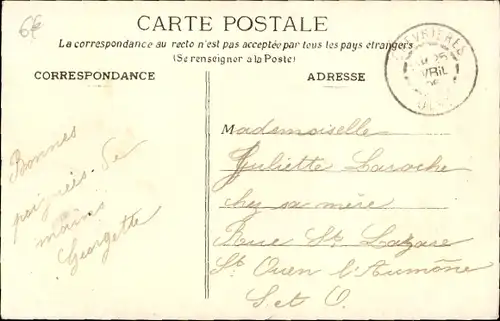 6€
CARTE POSTALE
La correspondance au recto n'est pas acceptée par tous les pays étrangers
(Se renseigner à la Poste)
CORRESPONDANCE
ADRESSE
CHEVRIÈRES
25
AVRIL
OISE
Bonnes
poignées de
mains
Georgette
Mademoiselle
Juliette Laroche
chez sa mère
Rue St Lazare
St Ouen l'Aumône
S. et O.